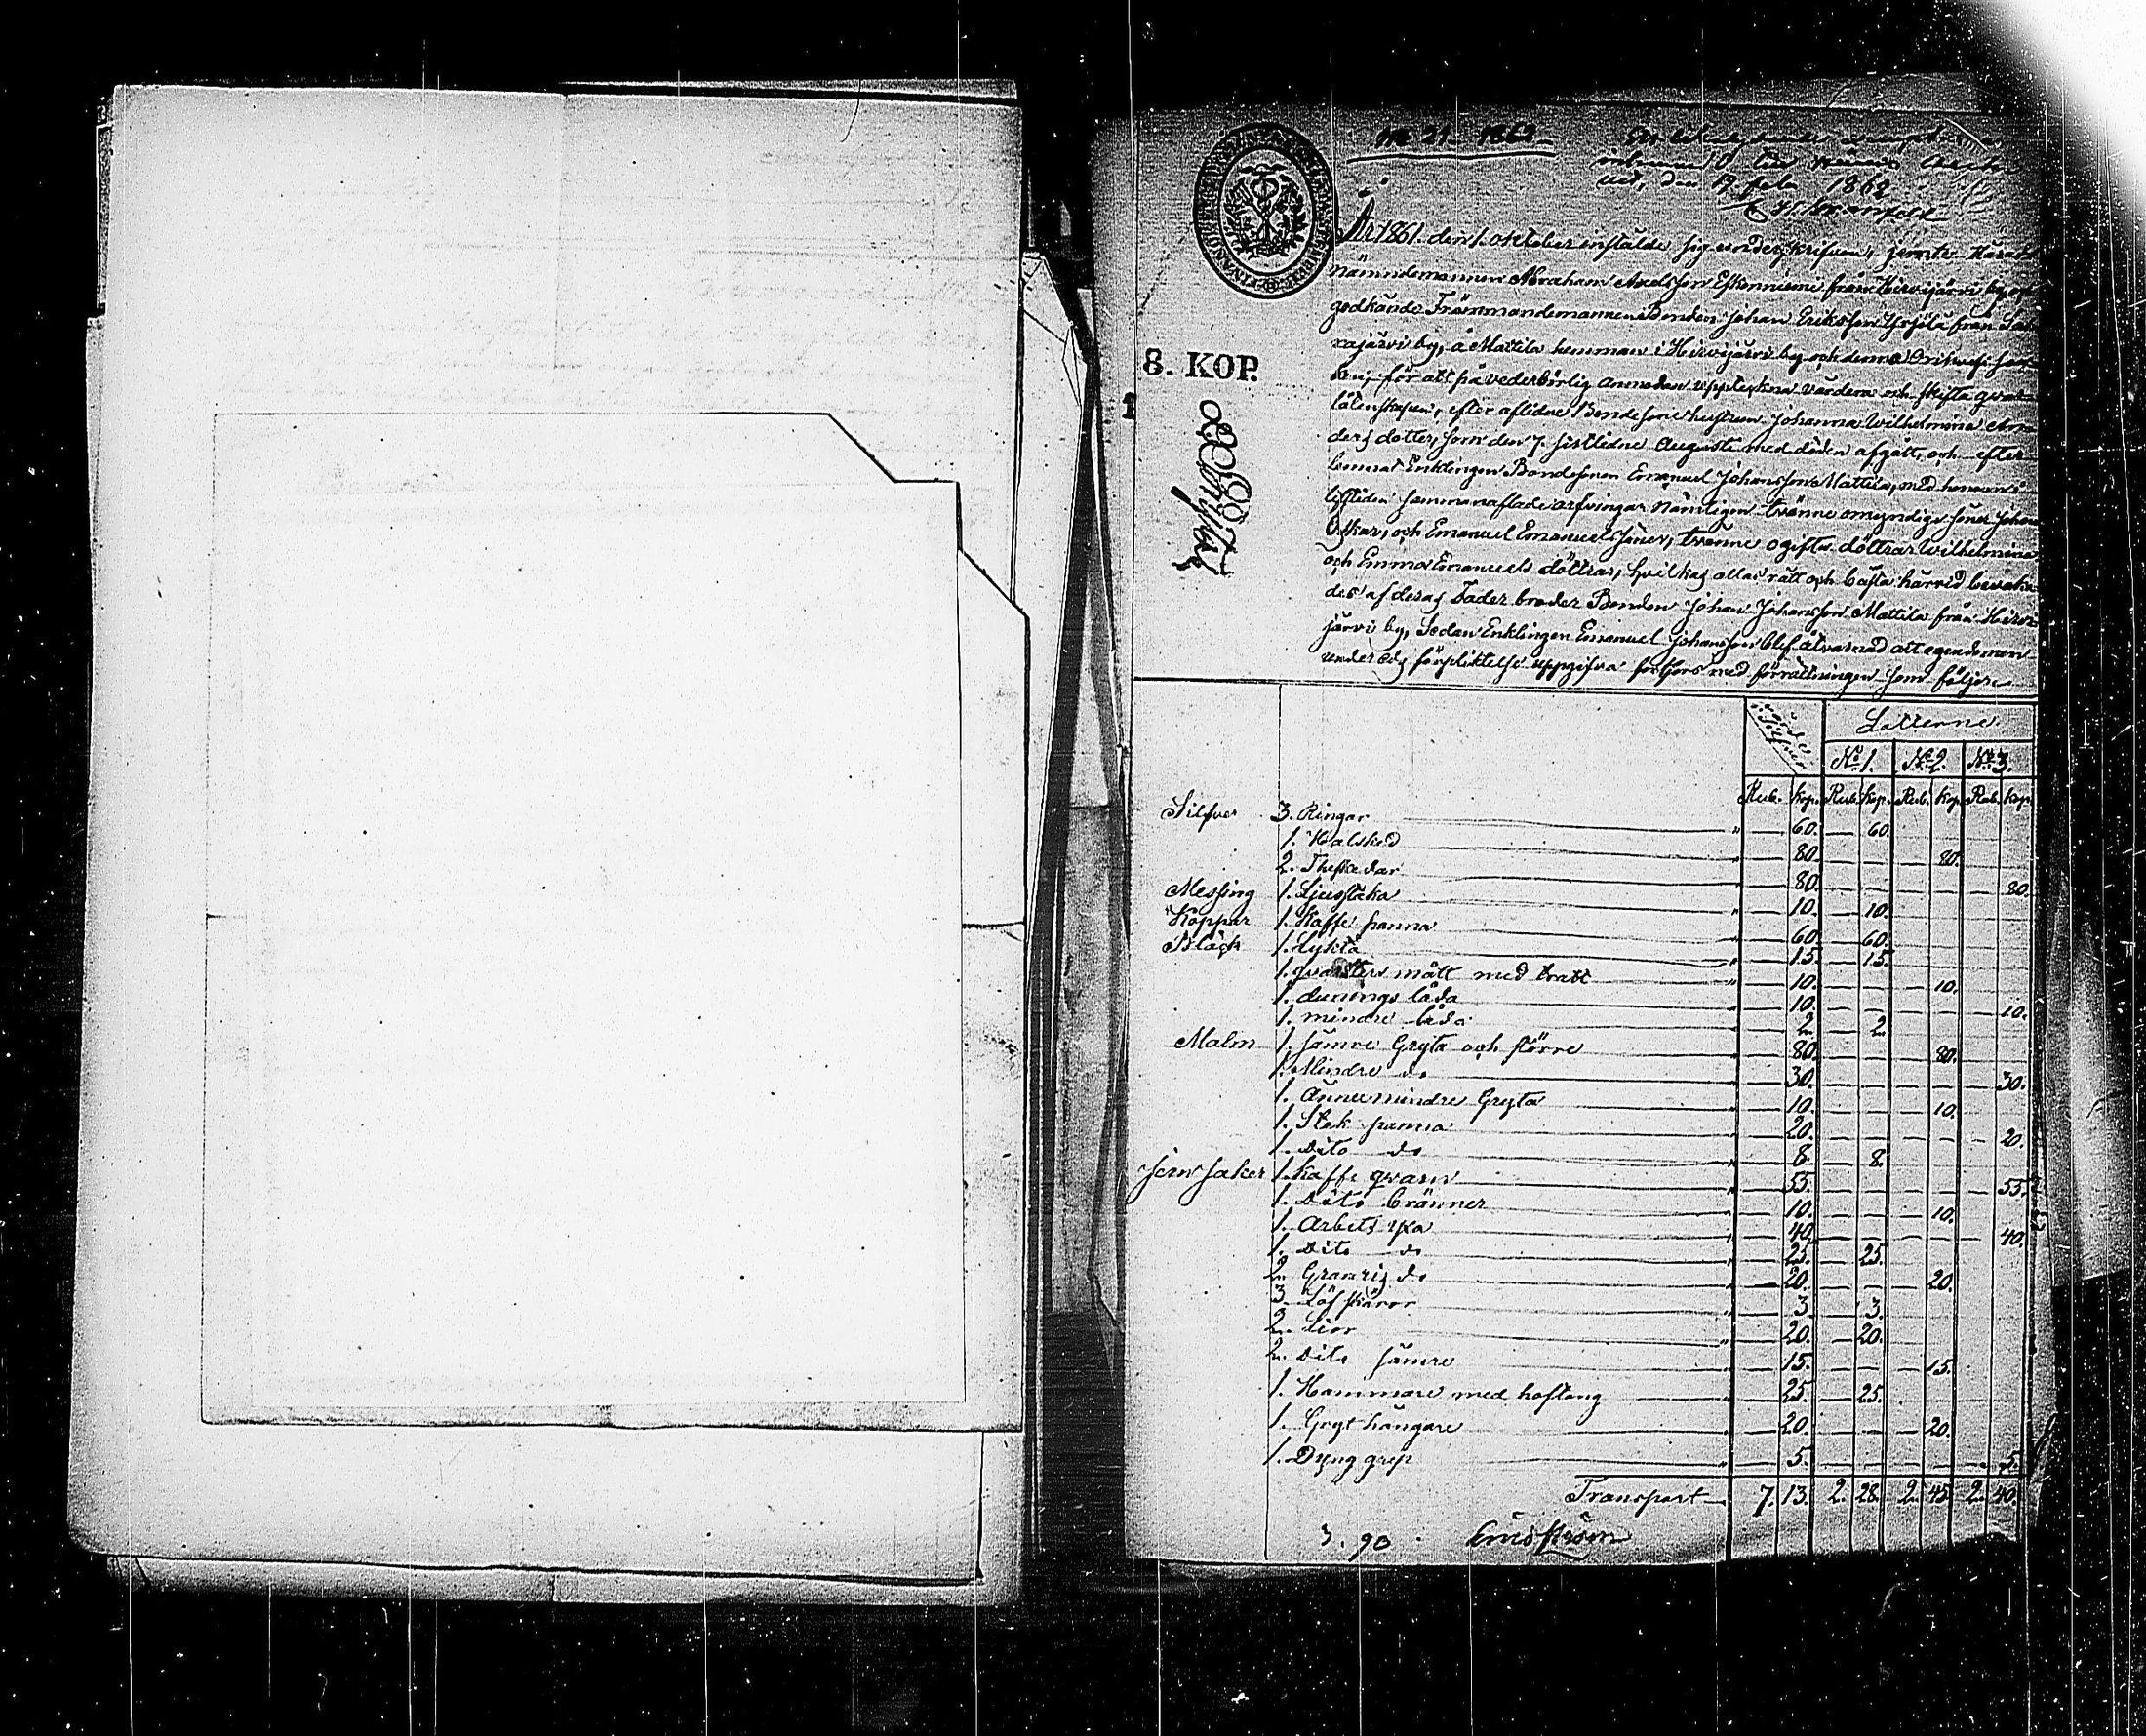 No 21. 1862.
den 17 Feb. 1862
År 1861. den 1. oktober instälde sig underskrifven, jemte Härads
Nämndemannen Abraham Axelsson Eskonniemi från Hirvijärvi by och
godkände Främmandemannen Bonden Johan Eriksson Yrjölä från
rajärvi by, å Mattila hemman i Hirvijärvi by och denna
8. KOP.
ben, för att på vederbörlig anmodan uppteckna värdera och skifta qvar
låtenskapen, efter aflidne Bondesone hustrun Johanna Wilhelmina
ders dotter, som den 7. sistledne Augusti med döden afgått, och efter
lemnat Enklingen Bondesonen Emanuel Johansson Mattila, med honom i
lifstiden sammanaflade arfvingar Nämligen tvänne omyndige söner Johan
Oskar, och Emanuel Emanuels söner, tvänne ogifta döttrar Wilhelmina
och Emma Emanuels döttrar, hvilkas allas rätt och bästa härvid bevaka
des af deras Fader broder Bonden Johan Johansson Mattila från Hirvi
järvi by, Sedan Enklingen Emanuel Johansson blef åtvarnad att egendomen
under eds förpliktelse uppgifva fortfors med förrättningen som följer
Lotterne
No 1. No 2. No 3.
Rub. Kop. Rub. Kop. Rub. Kop. Rub. Kop.
Silfver 3. Ringar " 60. 60.
1. Halsked " 80. 80.
2. Theskedar " 80. 80.
Messing 1. Ljusstaka " 10. 10.
Koppar 1. Kaffe panna " 60. 60.
Bläck 1. Lykta " 15. 15.
1. qvarters mått med tratt " 10. 10.
1. låda " 10. 10.
1. mindre låda " 2. 2
Malm 1. sämre Gryta och större " 80. 80.
1. Mindre do " 30. 30.
1. Ännu mindre Gryta " 10. 10.
1. Stek panna " 20. 20.
1. Dito do " 8. 8
Jern saker 1. Kaffe qvarn " 55. 55.
1. Dito bränner " 10. 10.
1. Arbets yxa " 40. 40.
1. Dito do " 25. 25.
2. Granris do " 20. 20.
3. Löf skäror " 3. 3.
2. Lior " 20. 20.
2. Dito sämre " 15. 15.
1. Hammare med hoftång " 25. 25.
1. Gryt hängare " 20. 20.
1. Dyng grep " 5. 5.
Transport 7. 13. 2. 28. 2. 45. 2. 40.
3. 90.